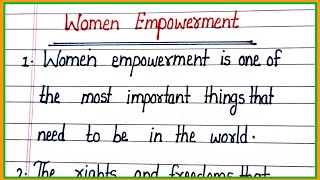 Women Empowerment
1. Women empowerment is one of
the most important things that
need to be in the world.
2. The rights and freedoms that